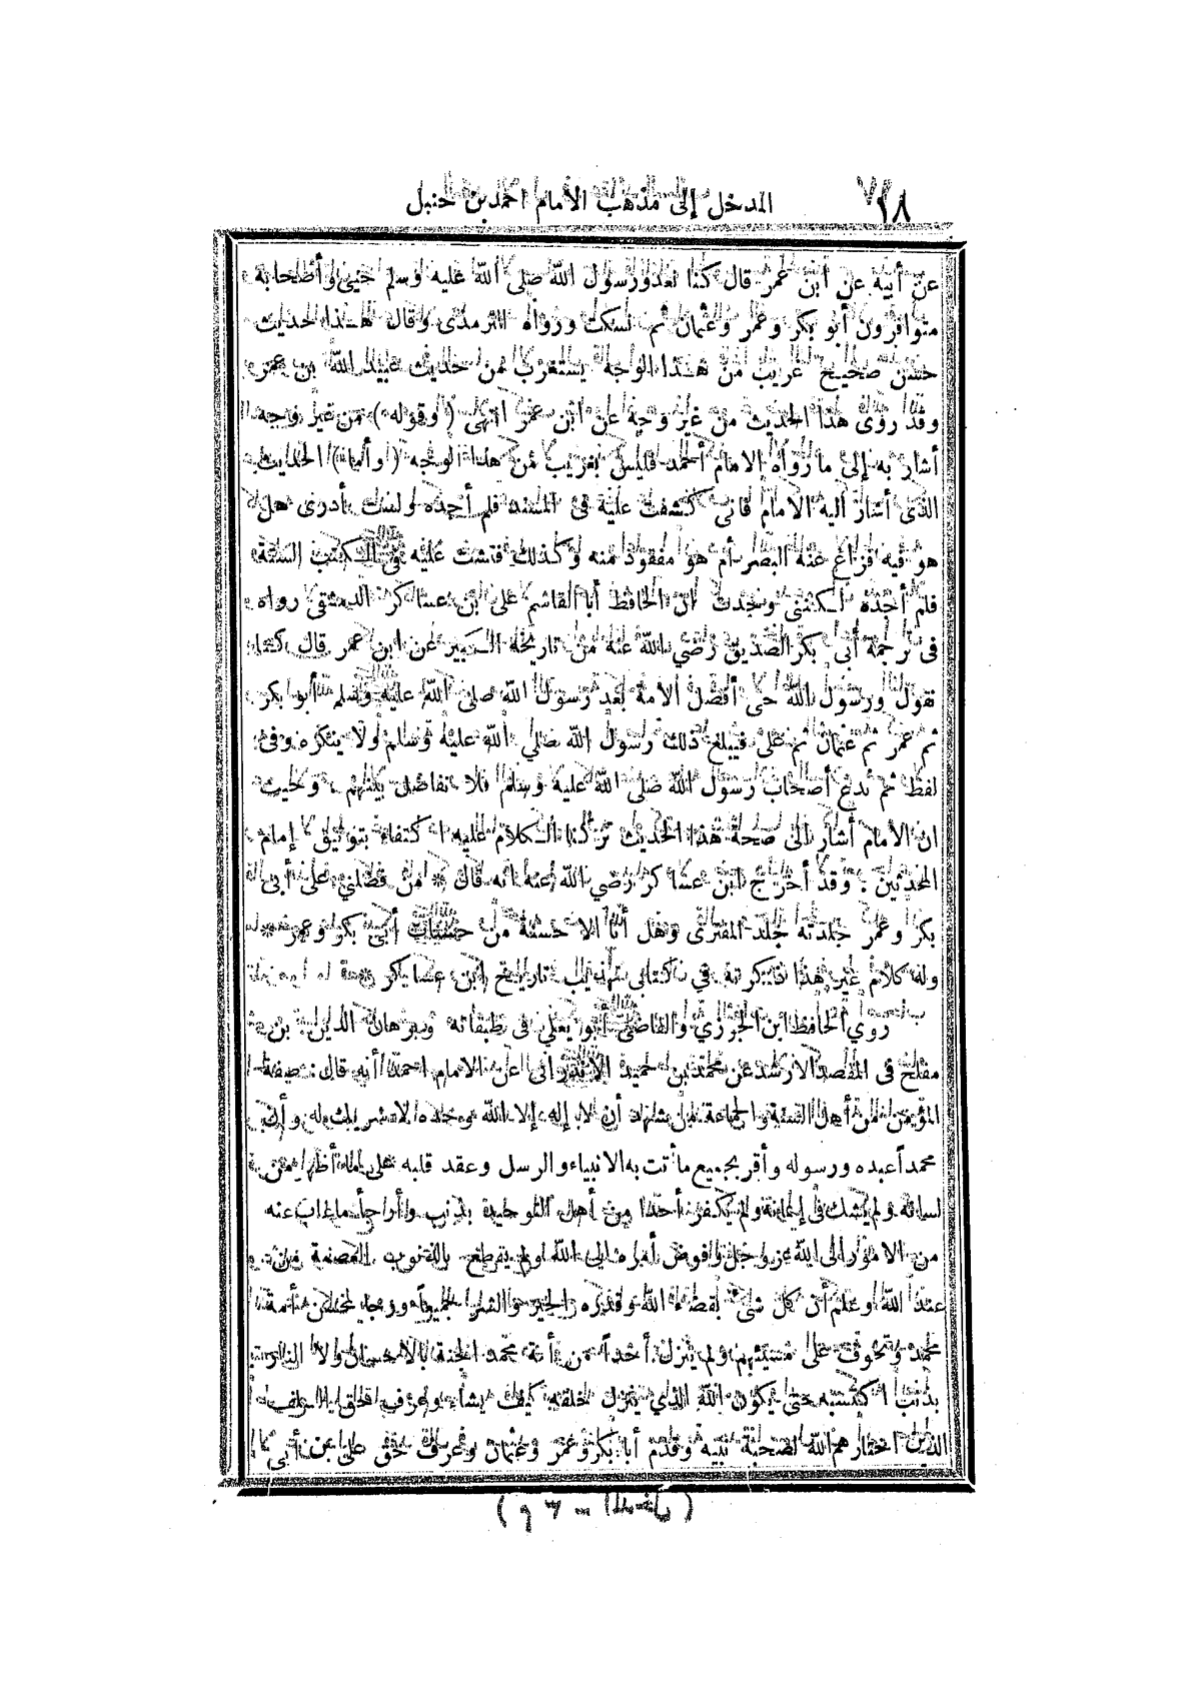 ١٨ المدخل إلى مذهب الامام احمد بن حنبل
عن أبيه عن ابن عمر قال كنا نعد ورسول الله صلى الله عليه وسلم حي وأصحابه
متوافرون أبو بكر وعمر وعثمان ثم نسكت ورواه الترمذى وقال هذا حديث
حسن صحيح غريب من هذا الوجه يستغرب من حديث عبيد الله بن عمر
وقد روى هذا الحديث من غير وجه عن ابن عمر انتهى ( وقوله ) من غير وجه
أشار به إلى ما رواه الامام أحمد فليس بغريب من هذا الوجه ( وأما ) الحديث
الذى أشار اليه الامام فانى كشفت عليه فى المسند فلم أجده ولست أدرى هل
هو فيه فزاغ عنه البصر أم هو مفقود منه وكذلك فتشت عليه فى الكتب الستة
فلم أجده لكننى وجدت ان الحافظ أبا القاسم على بن عساكر الدمشقى رواه
فى ترجمة أبى بكر الصديق رضي الله عنه من تاريخه الكبير عن ابن عمر قال كنا
نقول ورسول الله حى أفضل الامة بعد رسول الله صلى الله عليه وسلم أبو بكر
ثم عمر ثم عثمان ثم على فيبلغ ذلك رسول الله صلي الله عليه وسلم ولا ينكره وفى
لفظ ثم ندع أصحاب رسول الله صلى الله عليه وسلم فلا نفاضل بينهم . وحيث
ان الامام أشار الى صحة هذا الحديث تركنا الكلام عليه اكتفاء بتوثيق إمام
المحدثين . وقد أخرج ابن عساكر رضي الله عنه انه قال * من فضلني على أبى
بكر وعمر جلدته جلد المفترى وهل أنا الا حسنة من حسنات أبى بكر وعمر *
وله كلام غير هذا ذكرته في كتابى تهذيب تاريخ ابن عساكر
روي الحافظ ابن الجوزي والقاضى أبو يعلى فى طبقاته وبرهان الدين بن
مفلح فى المقصد الارشد عن محمد بن حميد الأندرانى عن الامام احمد أنه قال : صفة
المؤمن من أهل السنة والجماعة من يشهد أن لا إله إلا الله وحده لا شريك له وأن
محمداً عبده ورسوله وأقر بجميع ما أتت به الانبياء والرسل وعقد قلبه على ما أظهر من
لسانه ولم يشك فى إيمانه ولم يكفر أحدا من أهل التوحيد بذنب وأرجأ ما غاب عنه
من الامور الى الله عز وجل وفوض أمره الى الله ولم يقطع بالذنوب العصمة من
عند الله وعلم أن كل شئ بقضاء الله وقدره والخير والشر جميعاً ورجا لمحسن أمة
محمد وتخوف على مسيئهم ولم ينزل أحداً من أمة محمد الجنة بالاحسان ولا النار
بذنب اكتسبه حتى يكون الله الذي ينزل خلقه كيف يشاء وعرف حق السلف
الذين اختارهم الله لصحبة نبيه وقدم أبا بكر وعمر وعثمان وعرف حق على بن أبى